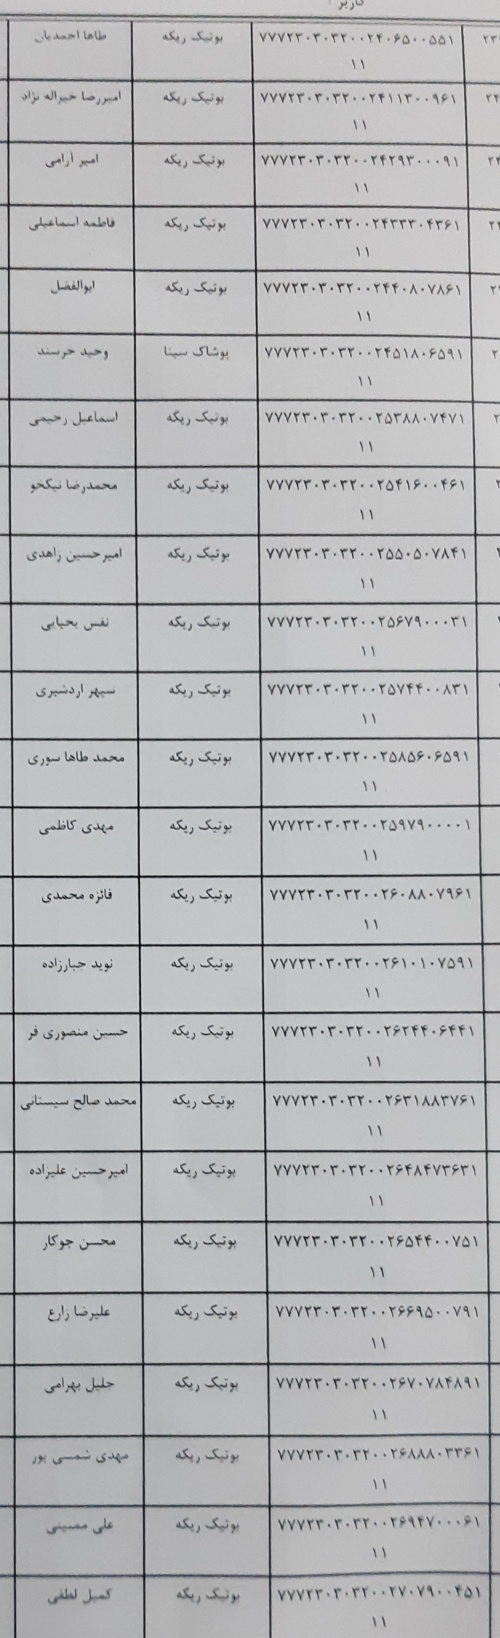 کاربر
۷۷۷۲۳۰۳۰۳۲۰۰۲۴۰۶۵۰۰۵۵۱ بوتیک ریکه طاها احمدیان
۱۱
۷۷۷۲۳۰۳۰۳۲۰۰۲۴۱۱۳۰۰۹۶۱ بوتیک ریکه امیررضا خیراله نژاد
۱۱
۷۷۷۲۳۰۳۰۳۲۰۰۲۴۲۹۳۰۰۰۹۱ بوتیک ریکه امیر آرامی
۱۱
۷۷۷۲۳۰۳۰۳۲۰۰۲۴۳۳۳۰۴۳۶۱ بوتیک ریکه فاطمه اسماعیلی
۱۱
۷۷۷۲۳۰۳۰۳۲۰۰۲۴۴۰۸۰۷۸۶۱ بوتیک ریکه ابوالفضل
۱۱
۷۷۷۲۳۰۳۰۳۲۰۰۲۴۵۱۸۰۶۵۹۱ پوشاک سینا وحید خرسند
۱۱
۷۷۷۲۳۰۳۰۳۲۰۰۲۵۳۸۸۰۷۴۷۱ بوتیک ریکه اسماعیل رحیمی
۱۱
۷۷۷۲۳۰۳۰۳۲۰۰۲۵۴۱۶۰۰۴۶۱ بوتیک ریکه محمدرضا نیکخو
۱۱
۷۷۷۲۳۰۳۰۳۲۰۰۲۵۵۰۵۰۷۸۴۱ بوتیک ریکه امیرحسین زاهدی
۱۱
۷۷۷۲۳۰۳۰۳۲۰۰۲۵۶۷۹۰۰۰۳۱ بوتیک ریکه نفس یحیایی
۱۱
۷۷۷۲۳۰۳۰۳۲۰۰۲۵۷۴۴۰۰۸۳۱ بوتیک ریکه سپهر اردشیری
۱۱
۷۷۷۲۳۰۳۰۳۲۰۰۲۵۸۵۶۰۶۵۹۱ بوتیک ریکه محمد طاها سوری
۱۱
۷۷۷۲۳۰۳۰۳۲۰۰۲۵۹۷۹۰۰۰۰۱ بوتیک ریکه مهدی کاظمی
۱۱
۷۷۷۲۳۰۳۰۳۲۰۰۲۶۰۸۸۰۷۹۶۱ بوتیک ریکه فائزه محمدی
۱۱
۷۷۷۲۳۰۳۰۳۲۰۰۲۶۱۰۱۰۷۵۹۱ بوتیک ریکه نوید جبارزاده
۱۱
۷۷۷۲۳۰۳۰۳۲۰۰۲۶۲۴۴۰۶۴۴۱ بوتیک ریکه حسین منصوری فر
۱۱
۷۷۷۲۳۰۳۰۳۲۰۰۲۶۳۱۸۸۳۷۶۱ بوتیک ریکه محمد صالح سیستانی
۱۱
۷۷۷۲۳۰۳۰۳۲۰۰۲۶۴۸۴۷۳۶۳۱ بوتیک ریکه امیرحسین علیزاده
۱۱
۷۷۷۲۳۰۳۰۳۲۰۰۲۶۵۴۴۰۰۷۵۱ بوتیک ریکه محسن جوکار
۱۱
۷۷۷۲۳۰۳۰۳۲۰۰۲۶۶۹۵۰۰۷۹۱ بوتیک ریکه علیرضا زارع
۱۱
۷۷۷۲۳۰۳۰۳۲۰۰۲۶۷۰۷۸۴۸۹۱ بوتیک ریکه جلیل بهرامی
۱۱
۷۷۷۲۳۰۳۰۳۲۰۰۲۶۸۸۸۰۳۳۶۱ بوتیک ریکه مهدی شمسی پور
۱۱
۷۷۷۲۳۰۳۰۳۲۰۰۲۶۹۴۷۰۰۰۶۱ بوتیک ریکه علی ممبینی
۱۱
۷۷۷۲۳۰۳۰۳۲۰۰۲۷۰۷۹۰۰۴۵۱ بوتیک ریکه کمیل لطفی
۱۱